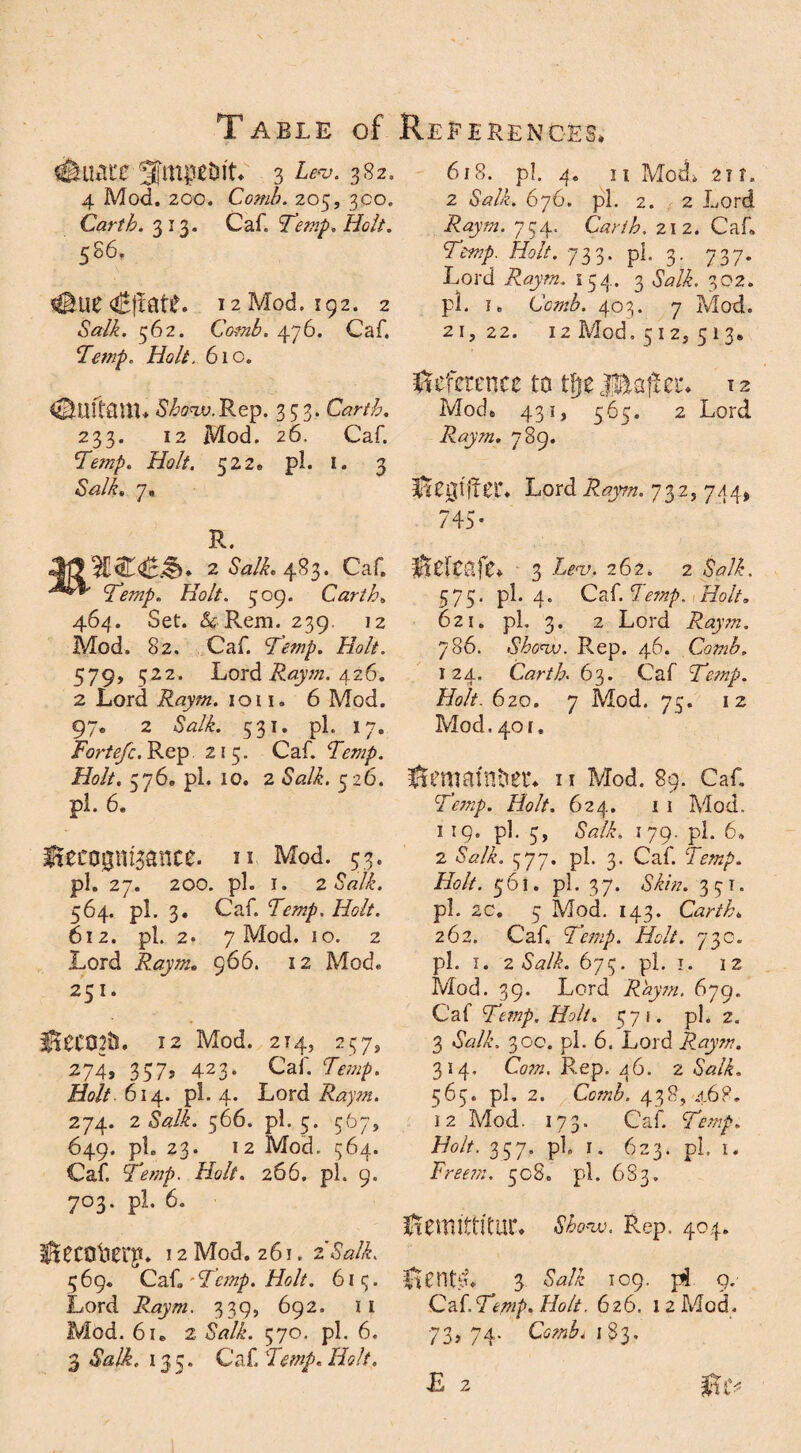 TABLE of REFERENCES.
Quare Impedit. 3 Lev. 382.
4 Mod. 200. Comb. 205, 300.
Carth. 313. Caſ. Temp. Holt.
586.
Que Eſtate. 12 Mod. 192. 2
Salk. 562. Comb. 476. Caſ.
Temp. Holt. 610.
Quitam. Show. Rep. 353. Carth.
233. 12 Mod. 26. Caſ.
Temp. Holt. 522. pl. 1. 3
Salk. 7.
R.
RACES. 2 Salk. 483. Caſ.
Temp. Holt. 509. Carth.
464. Set. & Rem. 239. 12
Mod. 82. Caſ. Temp. Holt.
579, 522. Lord Raym. 426.
2 Lord Raym. 1011. 6 Mod.
97. 2 Salk. 531. pl. 17.
Forteſc. Rep. 215. Caſ. Temp.
Holt. 576. pl. 10. 2 Salk. 526.
pl. 6.
Recognizance. 11 Mod. 53.
pl. 27. 200. pl. 1. 2 Salk.
564. pl. 3. Caſ. Temp. Holt.
612. pl. 2. 7 Mod. 10. 2
Lord Raym. 966. 12 Mod.
251.
Record. 12 Mod. 214, 257,
274, 357, 423. Caſ. Temp.
Holt. 614. pl. 4. Lord Raym.
274. 2 Salk. 566. pl. 5. 567,
649. pl. 23. 12 Mod. 564.
Caſ. Temp. Holt. 266. pl. 9.
703. pl. 6.
Recovery. 12 Mod. 261. 2 Salk.
569. Caſ. Temp. Holt. 615.
Lord Raym. 339, 692. 11
Mod. 61. 2 Salk. 570. pl. 6.
3 Salk. 135. Caſ. Temp. Holt.
618. pl. 4. 11 Mod. 211.
2 Salk. 676. pl. 2. 2 Lord
Raym. 754. Carth. 212. Caſ.
Temp. Holt. 733. pl. 3. 737.
Lord Raym. 154. 3 Salk. 302.
pl. 1. Comb. 403. 7 Mod.
21, 22. 12 Mod. 512, 513.
Reference to the Maſter. 12
Mod. 431, 565. 2 Lord
Raym. 789.
Regiſter. Lord Raym. 732, 744,
745.
Releaſe. 3 Lev. 262. 2 Salk.
575. pl. 4. Caſ. Temp. Holt.
621. pl. 3. 2 Lord Raym.
786. Show. Rep. 46. Comb.
124. Carth. 63. Caſ Temp.
Holt. 620. 7 Mod. 75. 12
Mod. 401.
Remainder. 11 Mod. 89. Caſ.
Temp. Holt. 624. 11 Mod.
119. pl. 5, Salk. 179. pl. 6.
2 Salk. 577. pl. 3. Caſ. Temp.
Holt. 561. pl. 37. Skin. 351.
pl. 20. 5 Mod. 143. Carth.
262. Caſ. Temp. Holt. 730.
pl. 1. 2 Salk. 675. pl. 1. 12
Mod. 39. Lord Raym. 679.
Caſ Temp. Holt. 571. pl. 2.
3 Salk. 300. pl. 6. Lord Raym.
314. Com. Rep. 46. 2 Salk.
565. pl. 2. Comb. 438, 468.
12 Mod. 173. Caſ. Temp.
Holt. 357. pl. 1. 623. pl. 1.
Freem. 508. pl. 683.
Remittitur. Show. Rep. 404.
Rents. 3 Salk 109. pl 9.
Caſ. Temp. Holt. 626. 12 Mod.
73, 74. Comb. 183.
E 2 Re-